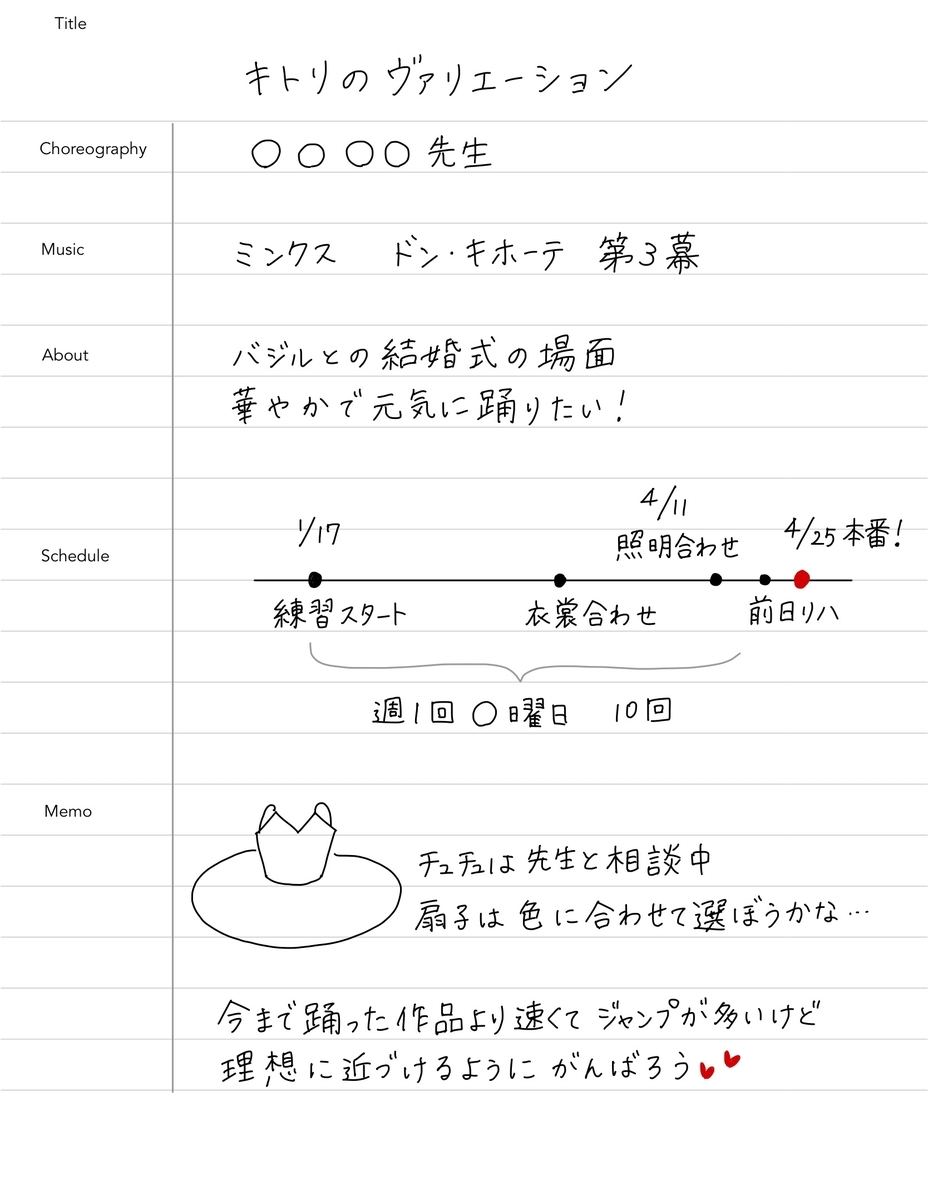 Title
キトリのヴァリエーション
Choreography
〇〇〇〇先生
Music
ミンクス ドン・キホーテ 第3幕
About
バジルとの結婚式の場面
華やかで元気に踊りたい!
Schedule
1/17
練習スタート
衣裳合わせ
4/11
照明合わせ
前日リハ
4/25本番!
週1回〇曜日 10回
Memo
チュチュは先生と相談中
扇子は色に合わせて選ぼうかな…
今まで踊った作品より速くてジャンプが多いけど
理想に近づけるようにがんばろう